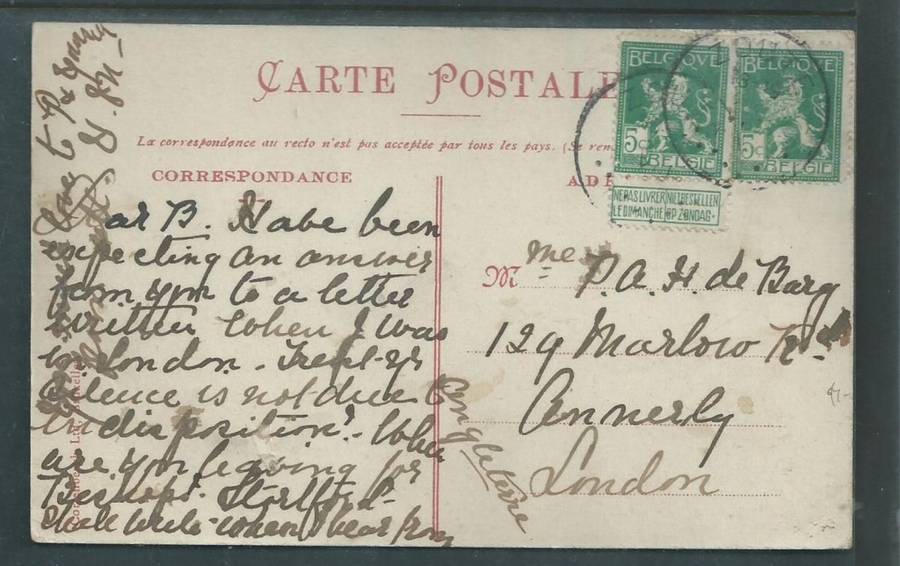 CARTE POSTALE
La correspondance au recto n'est pas acceptée par tous les pays. (Se ren
CORRESPONDANCE
ADR
BELGIQUE
5c
BELGIË
BELGIQUE
5c
BELGIË
NE PAS LIVRER NIET BESTELLEN
LE DIMANCHE OP ZONDAG
ar B. Have been
expecting an answer
from you to a letter
written when I was
in London. Trust yr
silence is not due to
indisposition! - When
are you leaving for
Bishops' Stortford -
Shall write when I hear from
Love to
Mme P. A. H. de Barg
129 Marlow Rd
Annerly
London
Engleterre